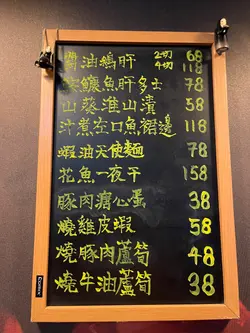 醬油鵝肝 2切 68
4切 118
鮟鱇魚肝多士 78
山葵淮山漬 58
汁煮左口魚裙邊 118
蝦油天使麵 78
花魚一夜干 158
豚肉溏心蛋 38
燒雞皮蝦 58
燒豚肉蘆筍 48
燒牛油蘆筍 38